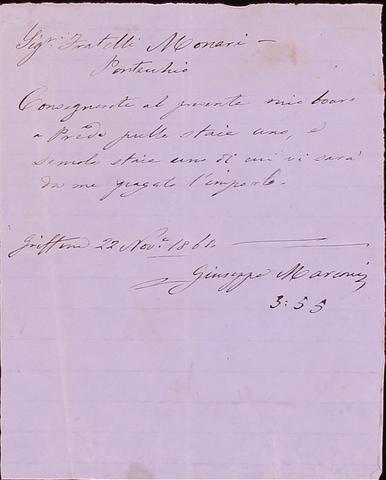 Sigri Fratelli Monari -
Pontecchio
Consegnerete al presente mio boaro
a staia uno, e
semola staia uno di cui vi sarà
da me pagato l'importo.
Griffone 22 Nov.e 186
Giuseppe Marconi
3:55